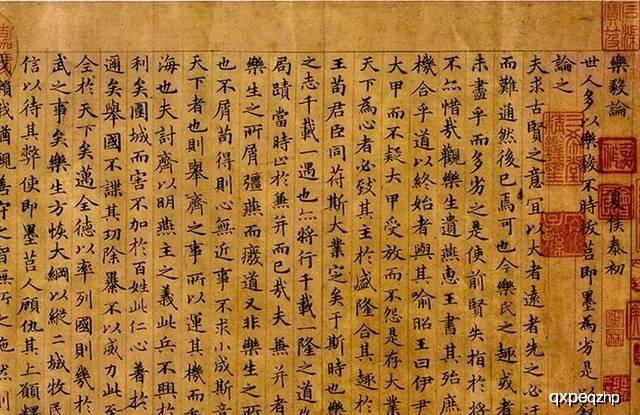 樂毅論 夏侯泰初
世人多以樂毅不時拔莒即墨為劣是
論之
夫求古賢之意宜以大者遠者先之必
而難通然後已焉可也今樂氏之趣或者
未盡乎而多劣之是使前賢失指於將
不亦惜哉觀樂生遺燕惠王書其殆庶
機合乎道以終始者與其喻昭王曰伊尹
大甲而不疑大甲受放而不怨是存大業
天下為心者必致其主於盛隆合其趣於
王苟君臣同符斯大業定矣于斯時也樂
之志千載一遇也亦將行千載一隆之道
局蹟當時止於兼并而已哉夫兼并者
樂生之所屑彊燕而廢道又非樂生之
也不屑苟得則心無近事不求小成斯意
天下者也則舉齊之事所以運其機而
海也夫討齊以明燕主之義此兵不興於
利矣圍城而害不加於百姓此仁心著於
邇矣舉國不謀其功除暴不以威力此至
全於天下矣邁全德以率列國則幾於
武之事矣樂生方恢大綱以縱二城牧民
信以待其弊使即墨莒人顧仇其上願
我猶親善守之智無所之施然則
qxpeqzhp